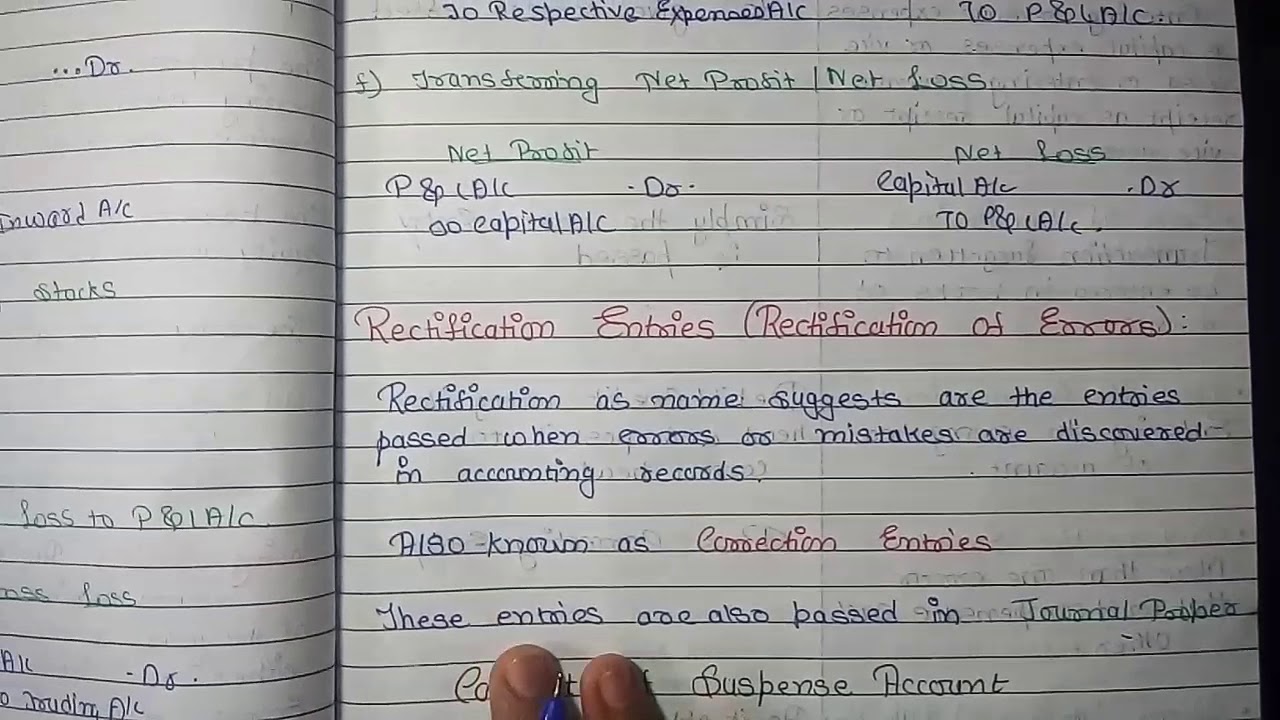 ...Dr.
Inward A/c
Stocks
Loss to P&L A/c
Loss
A/c -Dr.
Trading A/c
To Respective Expenses A/c To P&L A/c.
f) Transferring Net Profit / Net Loss
Net Profit Net Loss
P&L A/c .Dr. Capital A/c .Dr
To capital A/c To P&L A/c.
Rectification Entries (Rectification of Errors):
Rectification as name suggests are the entries
passed when errors or mistakes are discovered
in accounting records.
Also known as Correction Entries
These entries are also passed in Journal Proper
Suspense Account